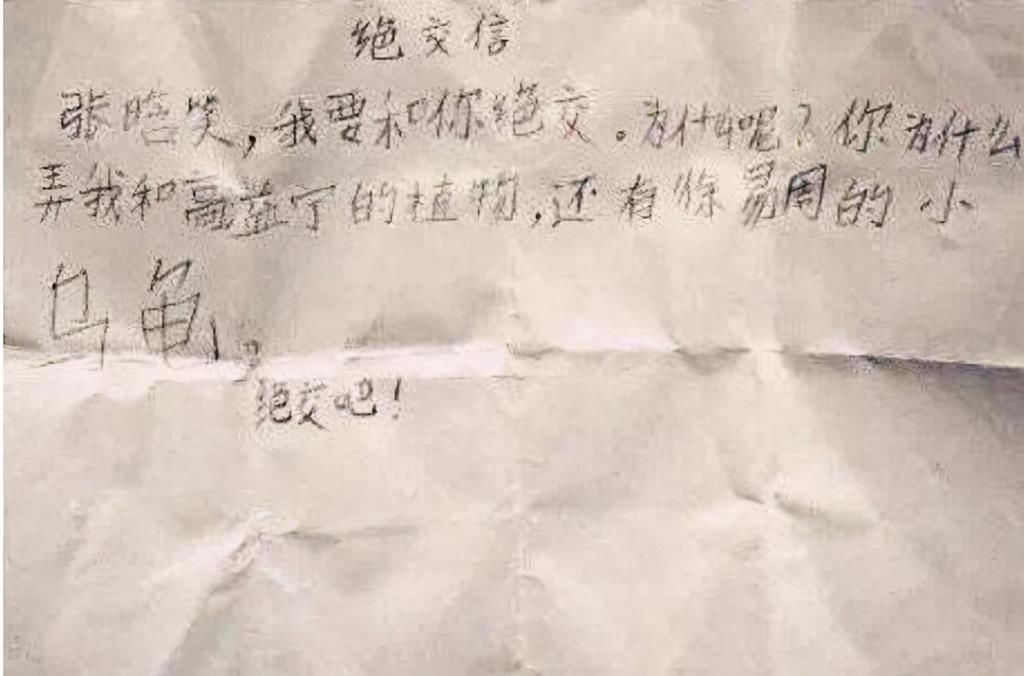 绝交信
张晗笑，我要和你绝交。为什么呢？你为什么
弄我和高益宁的植物，还有徐易周的小
乌龟？
绝交吧！